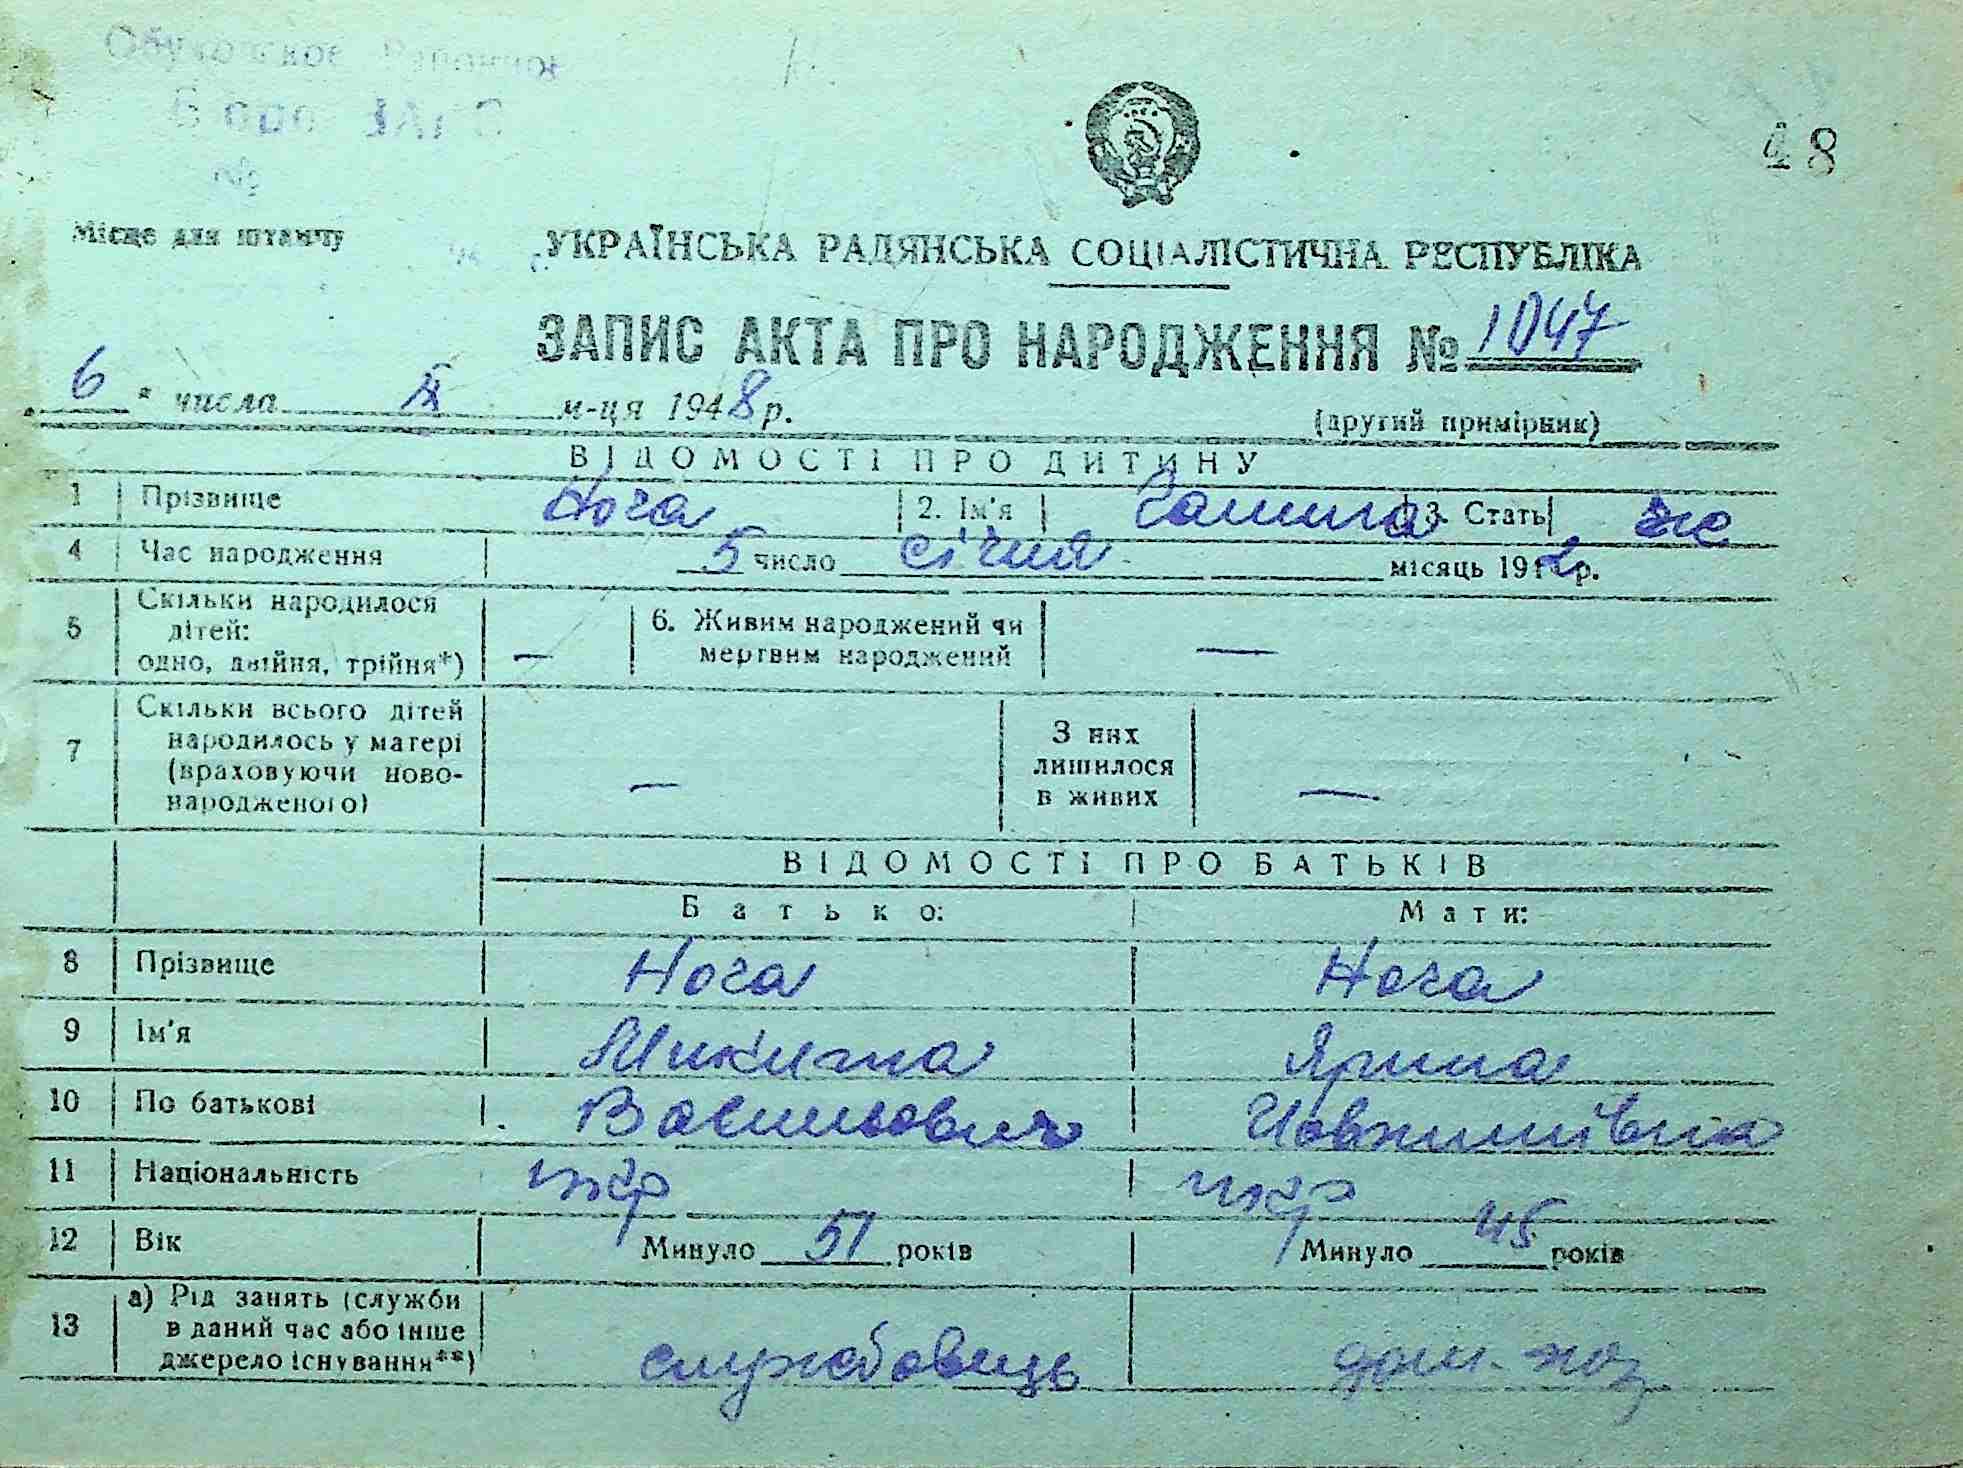 Обуховское Районное
Бюро ЗАГС
№
48
Місце для штампу
УКРАЇНСЬКА РАДЯНСЬКА СОЦІАЛІСТИЧНА РЕСПУБЛІКА
ЗАПИС АКТА ПРО НАРОДЖЕННЯ № 1047
6 " числа ІХ м-ця 1948 р.
(другий примірник)
ВІДОМОСТІ ПРО ДИТИНУ
1 Прізвище Ноча 2. Ім'я Галина 3. Стать же
4 Час народження 5 число січня місяць 19 р.
5 Скільки народилося
дітей:
одно, двійня, трійня*) —
6. Живим народжений чи
мертвим народжений —
7 Скільки всього дітей
народилось у матері
(враховуючи ново-
народженого) —
З них
лишилося
в живих —
ВІДОМОСТІ ПРО БАТЬКІВ
Батько: Мати:
8 Прізвище Ноча Ноча
9 Ім'я Микита Ярина
10 По батькові Васильович
11 Національність укр укр
12 Вік Минуло 51 років Минуло 45 років
13 а) Рід занять (служби
в даний час або інше
джерело існування**) службовець дом. хоз